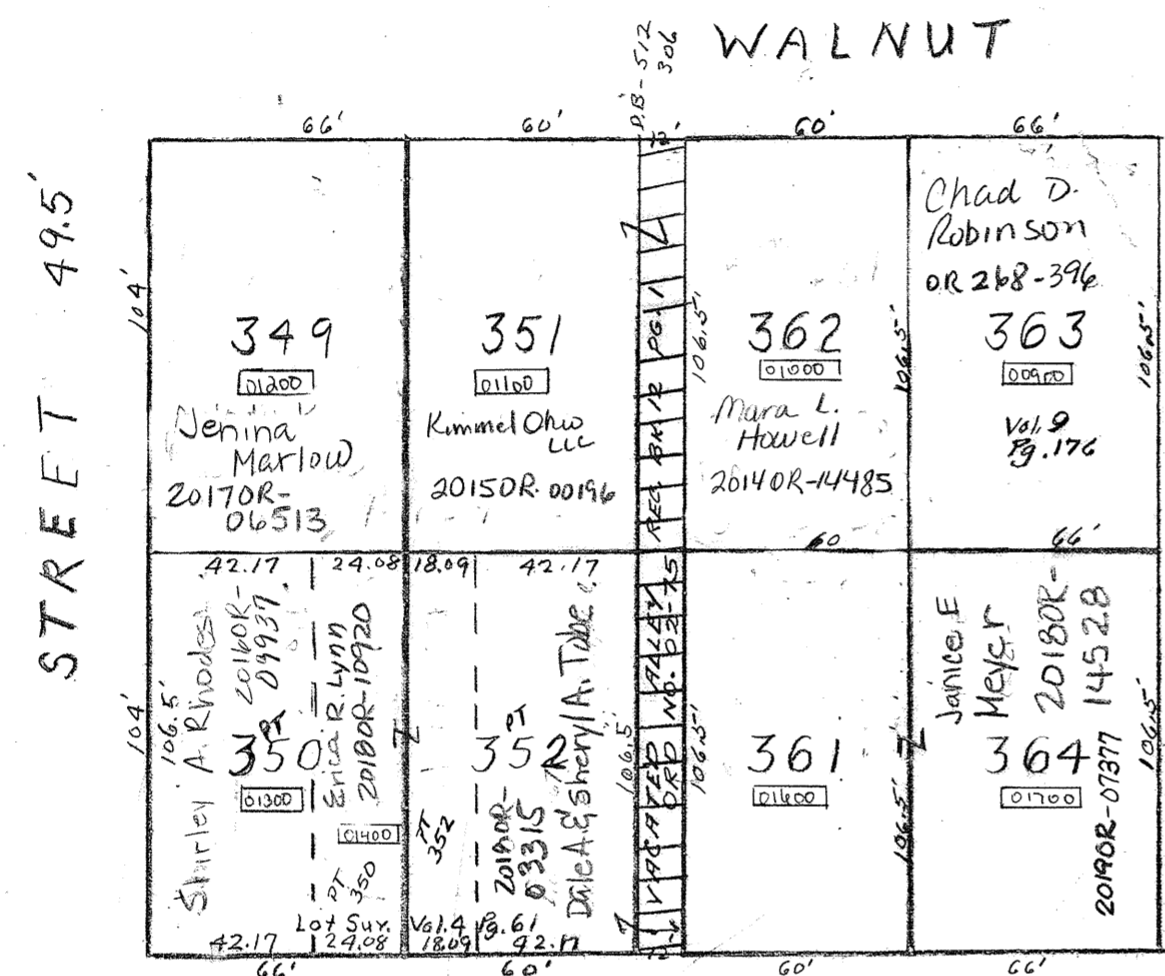 WALNUT
D.B-512
306
STREET 49.5'
66'
60'
12'
60'
66'
104'
349
01200
Jenina
Marlow
2017OR-
06513
351
01100
Kimmel Ohio
LLC
2015OR-00196
REC BK 12 PG 1
106.5'
362
01000
Mara L.
Howell
2014OR-14485
106.5'
Chad D.
Robinson
OR 268-396
363
00900
Vol. 9
Pg. 176
106.5'
60
66'
42.17
24.08
18.09
42.17
104'
106.5'
Shirley A. Rhodes
2016OR-
09937
PT
350
01300
Erica R. Lynn
2018OR-10920
01400
PT
350
PT
352
PT
352
2018OR-
03315
Dale A & Sheryl A. Tube
106.5'
VACATED ALLEY
ORD NO. 02-75
106.5'
361
01600
106.5'
Janice E
Meyer
2018OR-
14528
364
01700
2019OR-07377
106.5'
Lot Sur. Vol. 4 Pg. 61
42.17
24.08
18.09
42.17
66'
60'
60'
66'